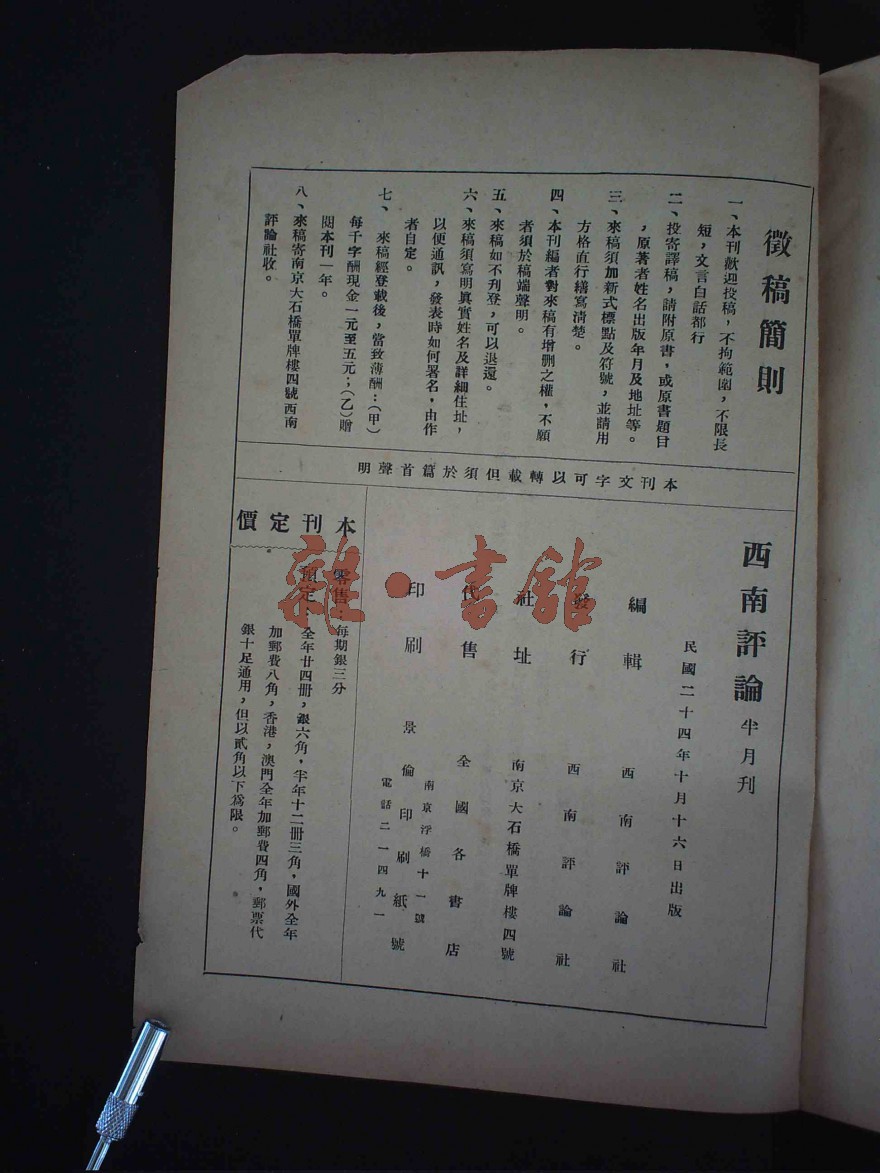 徵稿簡則
一、本刊歡迎投稿，不拘範圍，不限長
短，文言白話都行
二、投寄譯稿，請附原書，或原書題目
，原著者姓名出版年月及地址等。
三、來稿須加新式標點及符號，並請用
方格直行繕寫清楚。
四、本刊編者對來稿有增删之權，不願
者須於稿端聲明。
五、來稿如不刋登，可以退還。
六、來稿須寫明眞實姓名及詳細住址，
以便通訊，發表時如何署名，由作
者自定。
七、來稿經登載後，當致薄酬：（甲）
每千字酬現金一元至五元；（乙）贈
閱本刊一年。
八、來稿寄南京大石橋單牌樓四號西南
評論社收。
本刊文字可以轉載但須於篇首聲明
西南評論 半月刊
民國二十四年十月十六日出版
編輯 西南評論社
發行 西南評論社
社址 南京大石橋單牌樓四號
代售 全國各書店
印刷 景倫印刷紙號
南京浮橋十一號
電話二一四九一
本刊定價
零售：每期銀三分
預定 全年廿四册，銀六角，半年十二册三角，國外全年
加郵費八角，香港，澳門全年加郵費四角，郵票代
銀十足通用，但以貳角以下爲限。
雜·書館